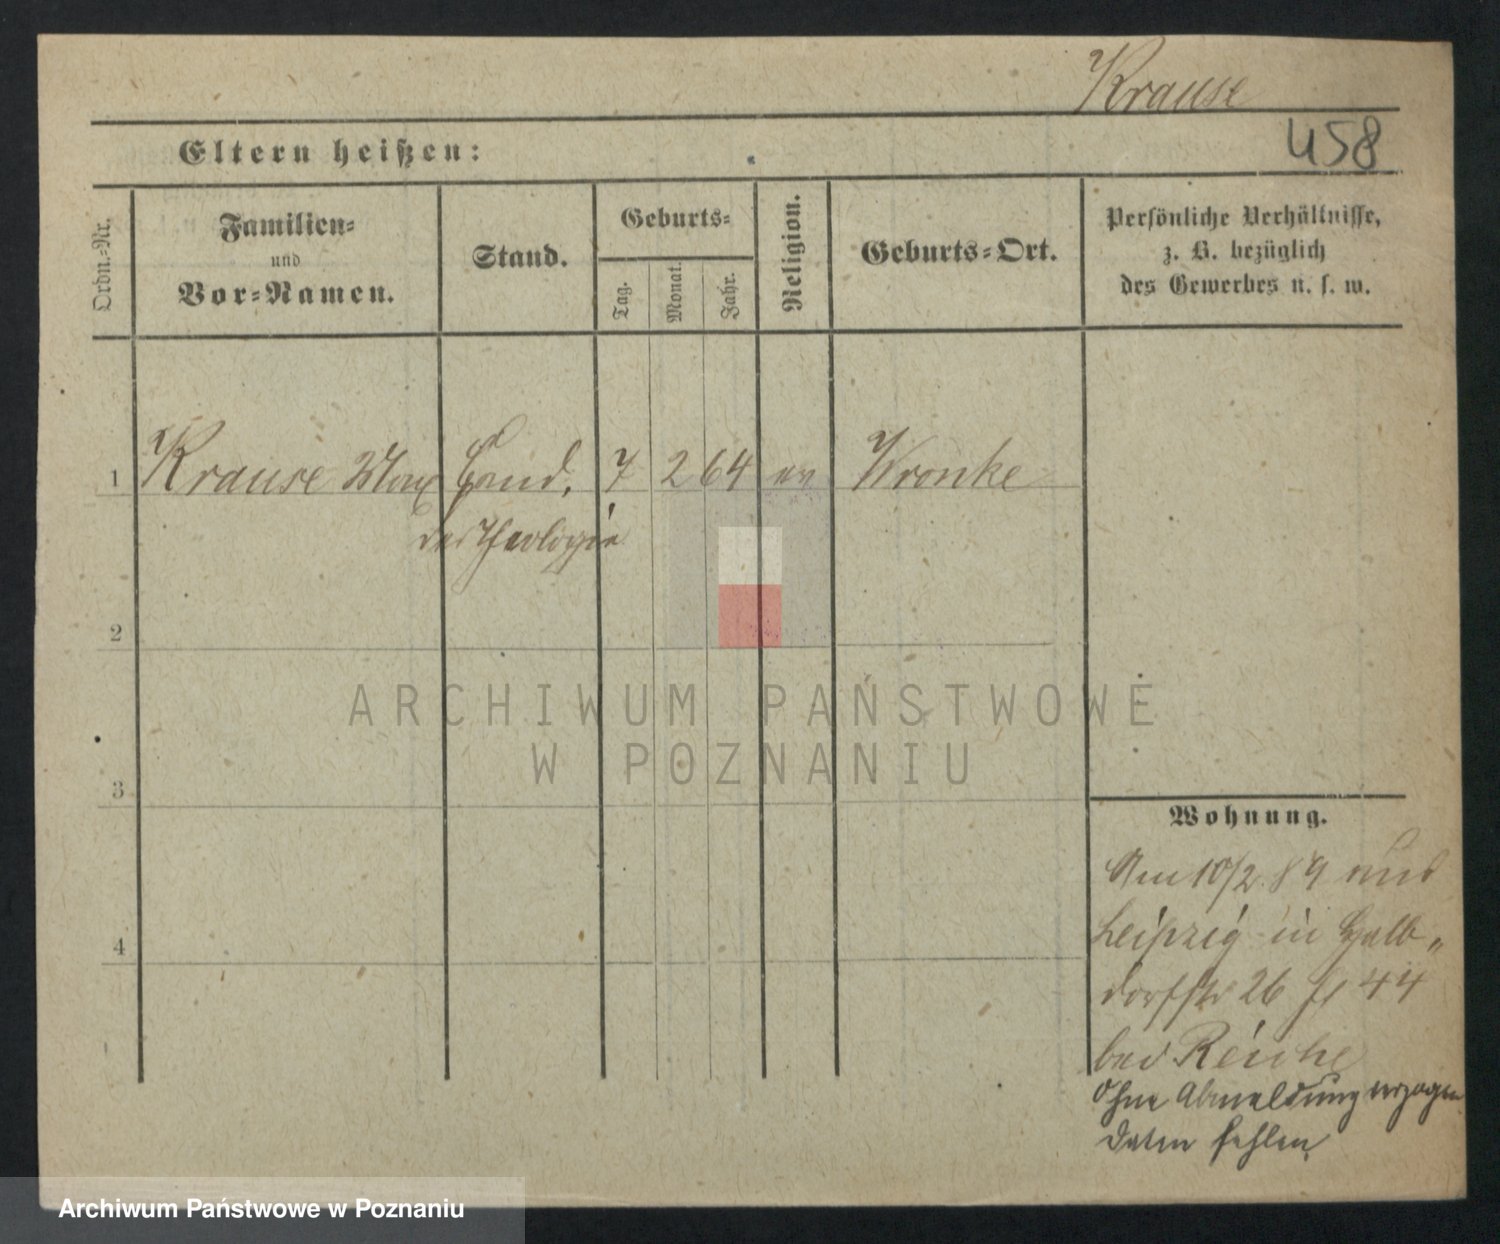 Krause
458
Eltern heißen:
Ordn.-Nr.
Familien-
und
Vor-Namen.
Stand.
Geburts-
Tag.
Monat.
Jahr.
Religion.
Geburts-Ort.
Persönliche Verhältnisse,
z. B. bezüglich
des Gewerbes u. s. w.
1 Krause Max Cand. 7 2 64 ev Wronke
der Theologie
2
3
4
ARCHIWUM PAŃSTWOWE
W POZNANIU
Wohnung.
Am 10/2. 89 aus
Leipzig in Halb-
dorfstr 26 44
bei Reiche
Ohne Abmeldung verzogen
Daten fehlen
Archiwum Państwowe w Poznaniu